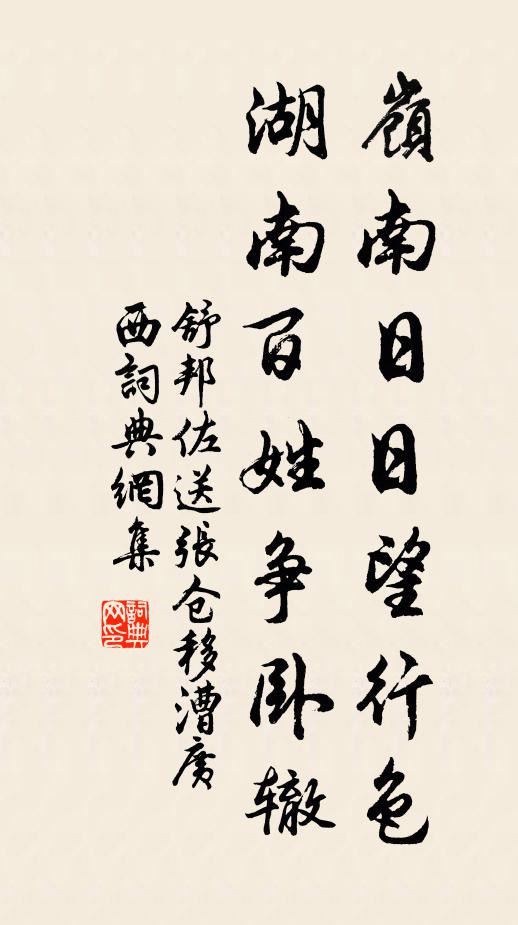 嶺南日日望行色
湖南百姓争卧辙
舒邦佐送張仓移漕廣
西詞典網集
詞典网印